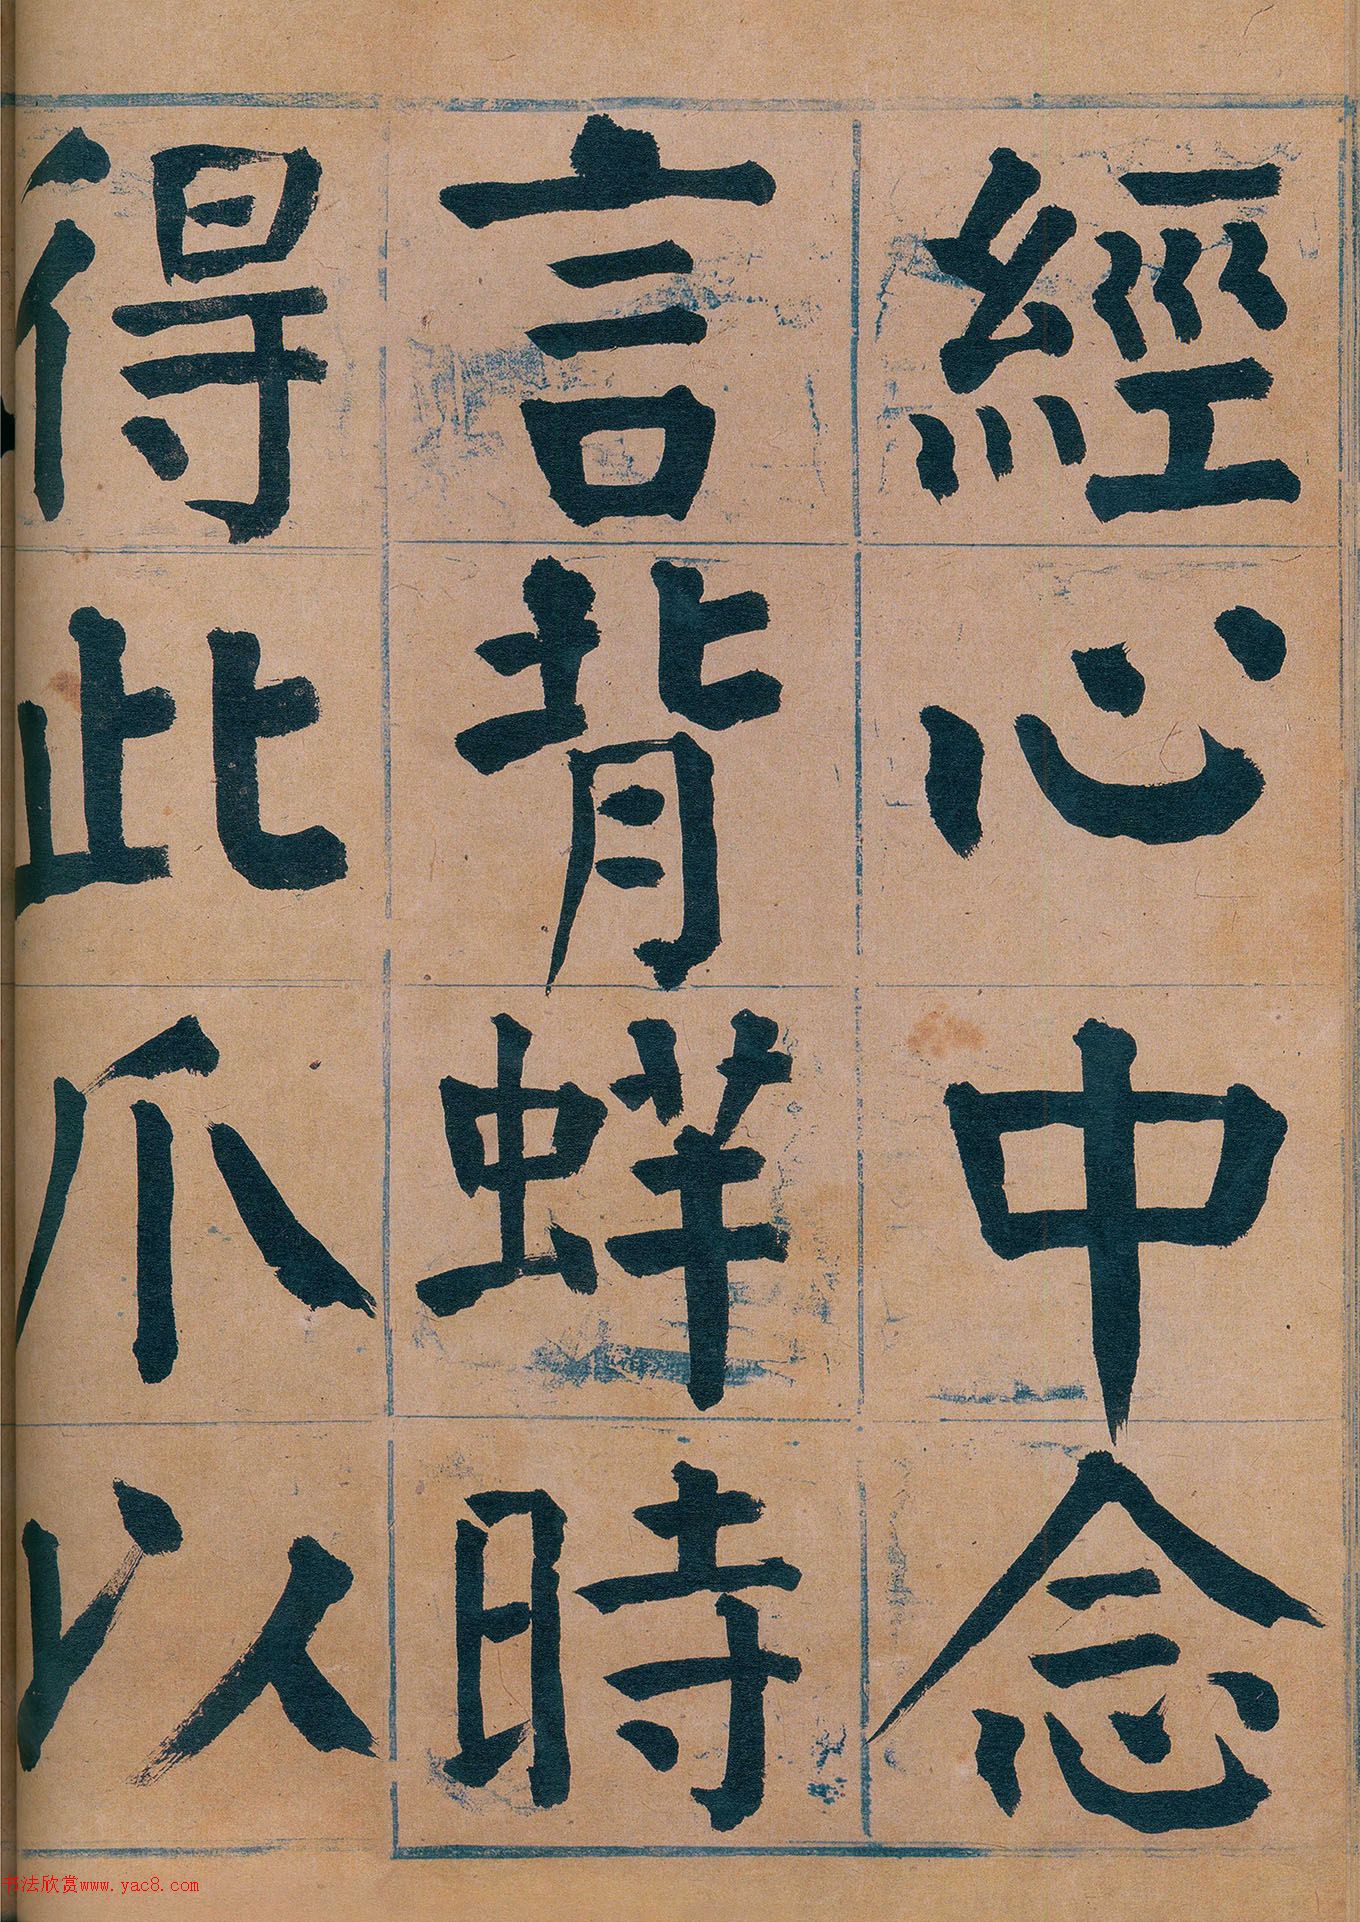 經心中念
言背蛘時
得此爪以
书法欣赏www.yac8.com